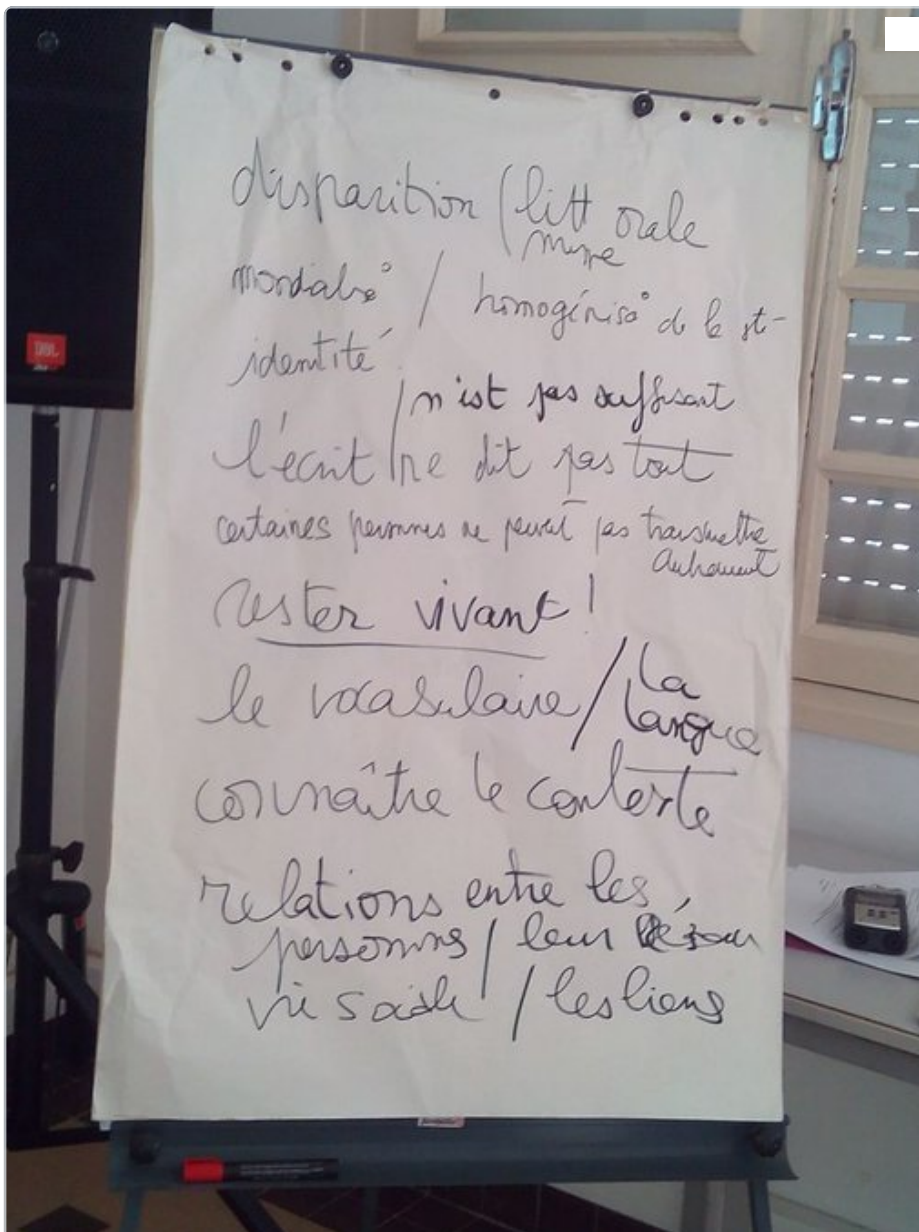 disparition / litt orale
mondialis° / homogénis° de la sté
identité
/ n'est pas suffisant
l'écrit / ne dit pas tout
certaines personnes ne peuvent pas transmettre
autrement
rester vivant !
le vocabulaire / la
langue
connaître le contexte
relations entre les
personnes / leur
vie sociale / les liens
JBL